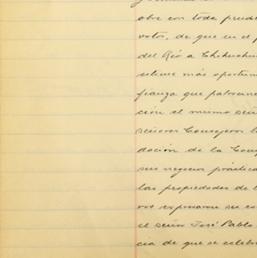 obre con toda prude
votos, de que en el p
del Río a Chihuahua
estime más oportun
fianza que patrocine
ción el mismo seño
señores Consejeros l
dación de la Comp
sus negocios práctica
las propiedades de l
ros expresaron su co
el señor José Pablo
cia de que se celebr